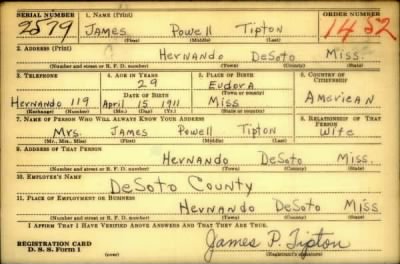 SERIAL NUMBER 1. NAME (Print) ORDER NUMBER
2579 JAMES Powell TIPTON 1452
(First) (Middle) (Last)
2. ADDRESS (Print)
HERNANDO DeSoto Miss.
(Number and street or R. F. D. number) (Town) (County) (State)
3. TELEPHONE 4. AGE IN YEARS 5. PLACE OF BIRTH 6. COUNTRY OF CITIZENSHIP
29 Eudora
DATE OF BIRTH (Town or county)
Hernando 119 April 15 1911 Miss American
(Exchange) (Number) (Mo.) (Day) (Yr.) (State or country)
7. NAME OF PERSON WHO WILL ALWAYS KNOW YOUR ADDRESS 8. RELATIONSHIP OF THAT PERSON
Mrs. James Powell Tipton Wife
(Mr., Mrs., Miss) (First) (Middle) (Last)
9. ADDRESS OF THAT PERSON
Hernando DeSoto Miss.
(Number and street or R. F. D. number) (Town) (County) (State)
10. EMPLOYER'S NAME
DeSoto County
11. PLACE OF EMPLOYMENT OR BUSINESS
Hernando DeSoto Miss
(Number and street or R. F. D. number) (Town) (County) (State)
I AFFIRM THAT I HAVE VERIFIED ABOVE ANSWERS AND THAT THEY ARE TRUE.
REGISTRATION CARD
D. S. S. Form 1 James P. Tipton
(Registrant's signature)